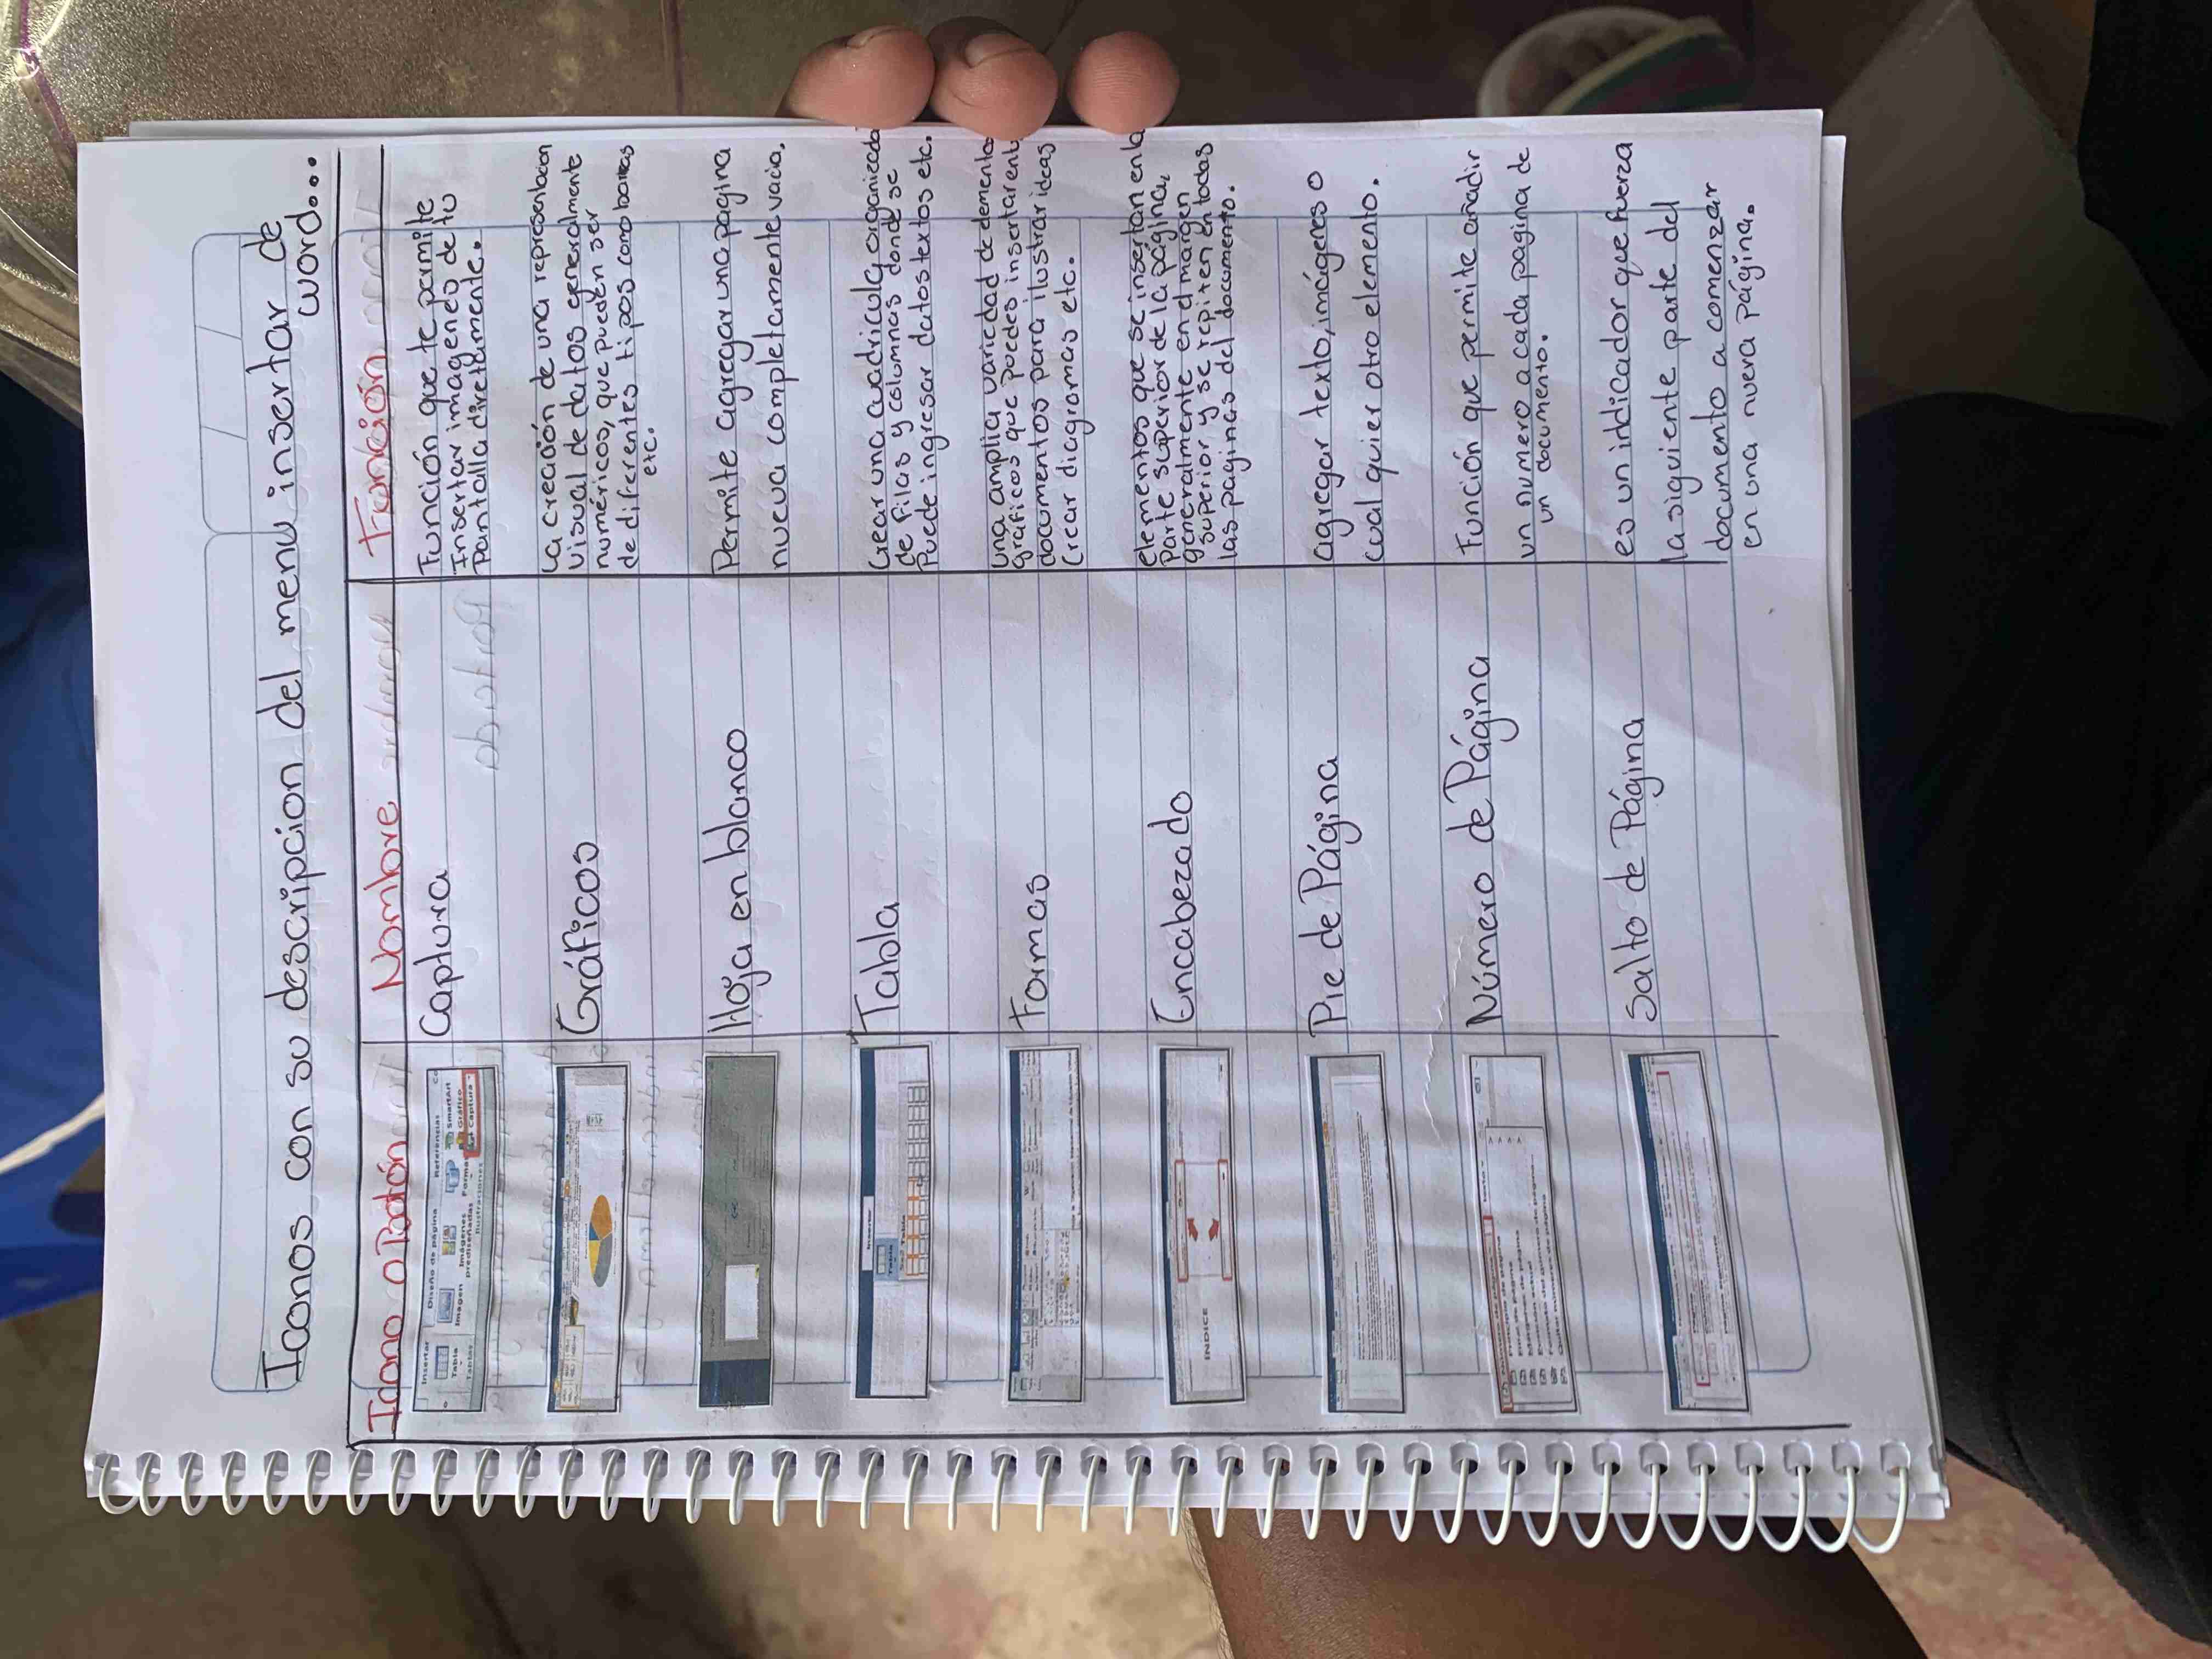 Iconos con su descripcion del menu insertar de
word...
Icono o Botón Nombre Función
Captura
Función que te permite
Insertar imagenes de tu
Pantalla diretamente.
Gráficos
La creación de una representacion
visual de datos generalmente
numéricos, que pueden ser
de diferentes tipos como barras
etc.
Hoja en blanco
Permite agregar una pagina
nueva completamente vacia.
Tabla
Crear una cuadricula organizada
de filas y columnas donde se
Puede ingresar datos textos etc.
Formas
una amplia variedad de elemento
graficos que puedes insertar en tu
documentos para ilustrar ideas
Crear diagramas etc.
Encabezado
elementos que se insertan en la
Parte superior de la página,
generalmente en el margen
superior y se repiten en todas
las paginas del documento.
Pie de Página
agregar texto, imágenes o
cual quier otro elemento.
Número de Página
Función que permite añadir
un numero a cada pagina de
un documento.
Salto de Página
es un indicador que fuerza
la siguiente parte del
documento a comenzar
en una nueva página.
Insertar Diseño de página Referencias
Tabla Imagen Imágenes prediseñadas Formas SmartArt Gráfico Captura
Tablas Ilustraciones
Insertar
Tabla
INDICE